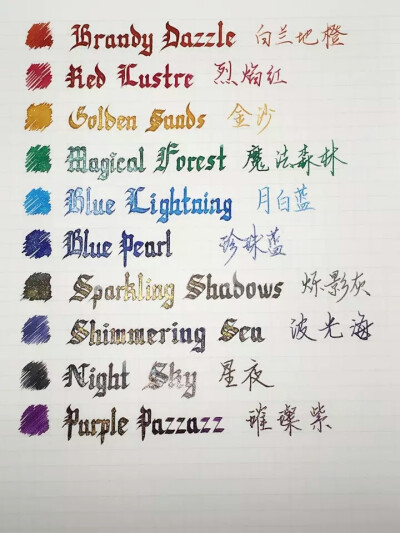 Brandy Dazzle 白兰地橙
Red Lustre 烈焰红
Golden Sands 金沙
Magical Forest 魔法森林
Blue Lightning 月白蓝
Blue Pearl 珍珠蓝
Sparkling Shadows 烁影灰
Shimmering Sea 波光海
Night Sky 星夜
Purple Pazzazz 璀璨紫